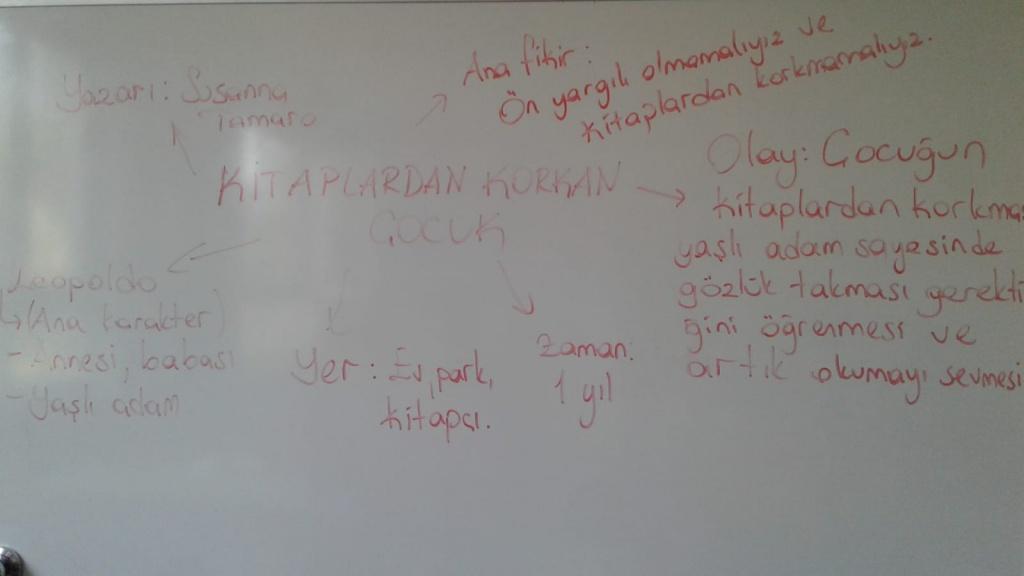 Yazarı: Susanna
Tamaro
Ana fikir:
Ön yargılı olmamalıyız ve
kitaplardan korkmamalıyız.
KİTAPLARDAN KORKAN
ÇOCUK
Olay: Çocuğun
kitaplardan korkma
yaşlı adam sayesinde
gözlük takması gerekti
ğini öğrenmesi ve
artık okumayı sevmesi
Leopoldo
↳(Ana karakter)
- Annesi, babası
- Yaşlı adam
Yer: Ev, park,
kitapçı.
Zaman:
1 yıl